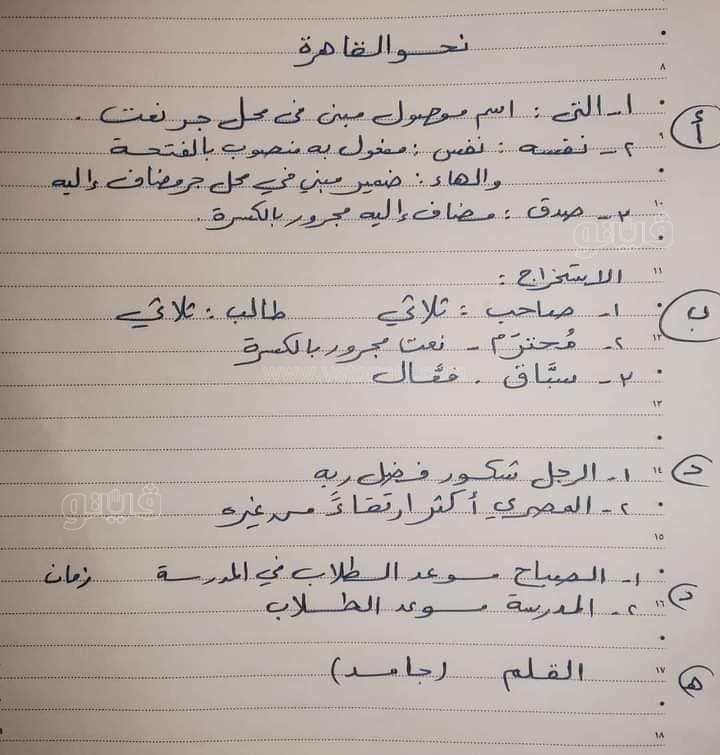 نحو القاهرة
٨
أ ١- التي : اسم موصول مبني في محل جر نعت .
٩ ٢- نفسه : نفس : مفعول به منصوب بالفتحة
والهاء : ضمير مبني في محل جر مضاف إليه
١٠ ٣- صدق : مضاف إليه مجرور بالكسرة .
فيتو
١١ الاستخراج :
ب ١- صاحب : ثلاثي طالب : ثلاثي
١٢ ٢- مُحترَم - نعت مجرور بالكسرة
٣- سبَّاق . فعَّال
١٣
١٤ ١- الرجل شكور فضل ربه
فيتو
٢- المصري أكثر ارتقاءً من غيره
١٥
١- الصباح موعد الطلاب في المدرسة زمان
د ١٦ ٢- المدرسة موعد الطلاب
هـ ١٧ القلم (جامد)
١٨